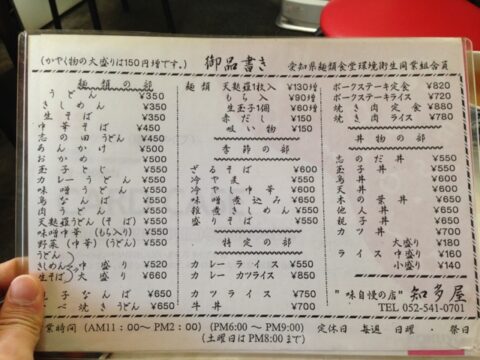 (かやく物の大盛りは150円増です。)
御品書き
愛知県麺類食堂環境衛生同業組合員
麺類の部
うどん ¥350
きしめん ¥350
生そば ¥350
中華そば ¥450
志の田うどん ¥450
あんかけ ¥500
おかめ ¥500
玉子とじ ¥550
カレーうどん ¥550
味噌うどん ¥550
鳥なんば ¥550
肉うどん ¥550
天麩羅うどん(そば) ¥550
味噌中華(もち入り) ¥550
野菜(中華)(うどん) ¥550
うどん
きしめん 中盛り ¥520
生そば 大盛り ¥660
子なんば ¥650
べ焼き ¥650
麺類 天麩羅1枚入 ¥130増
もち入 ¥90増
生玉子1個 ¥60増
赤だし ¥150
吸い物 ¥150
季節の部
ざるそば ¥600
冷やむぎ ¥550
冷やし中華 ¥600
味噌煮込み ¥650
きしめん ¥550
盛りそば ¥550
特定の部
カレーライス ¥550
カレーカツライス ¥850
カツライス ¥750
牛丼 ¥700
ポークステーキ定食 ¥820
ポークステーキライス ¥720
焼き肉定食 ¥880
焼き肉ライス ¥780
丼物の部
志のだ丼 ¥550
玉子丼 ¥550
鳥丼 ¥600
天丼 ¥600
木の葉丼 ¥650
他人丼 ¥650
親子丼 ¥650
カツ丼 ¥700
大盛り ¥180
ライス 中盛り ¥160
小盛り ¥140
"味自慢の店" 知多屋
TEL 052-541-0701
業時間 (AM11:00〜PM2:00) (PM6:00〜PM9:00) 定休日 毎週 日曜・祭日
(土曜日はPM8:00まで)